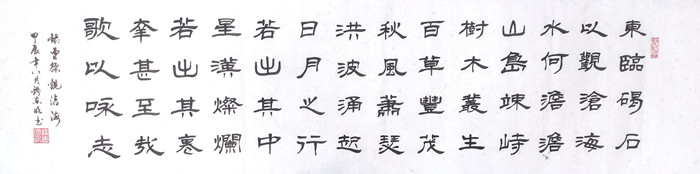 東臨碣石
以觀滄海
水何澹澹
山島竦峙
樹木叢生
百草豐茂
秋風蕭瑟
洪波涌起
日月之行
若出其中
星漢燦爛
若出其裏
幸甚至哉
歌以咏志
錄曹操觀滄海
甲辰年八月書